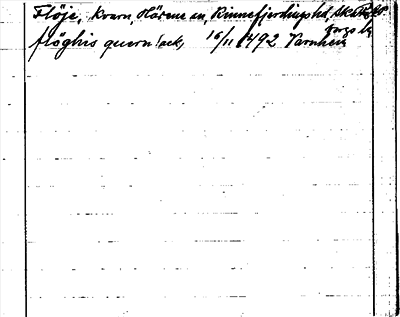 Flöje, kvarn, Härene sn, Kinnefjerdings hd, Skarab. l.
flöghis quern (ack, 16/11 1492 Varnhem